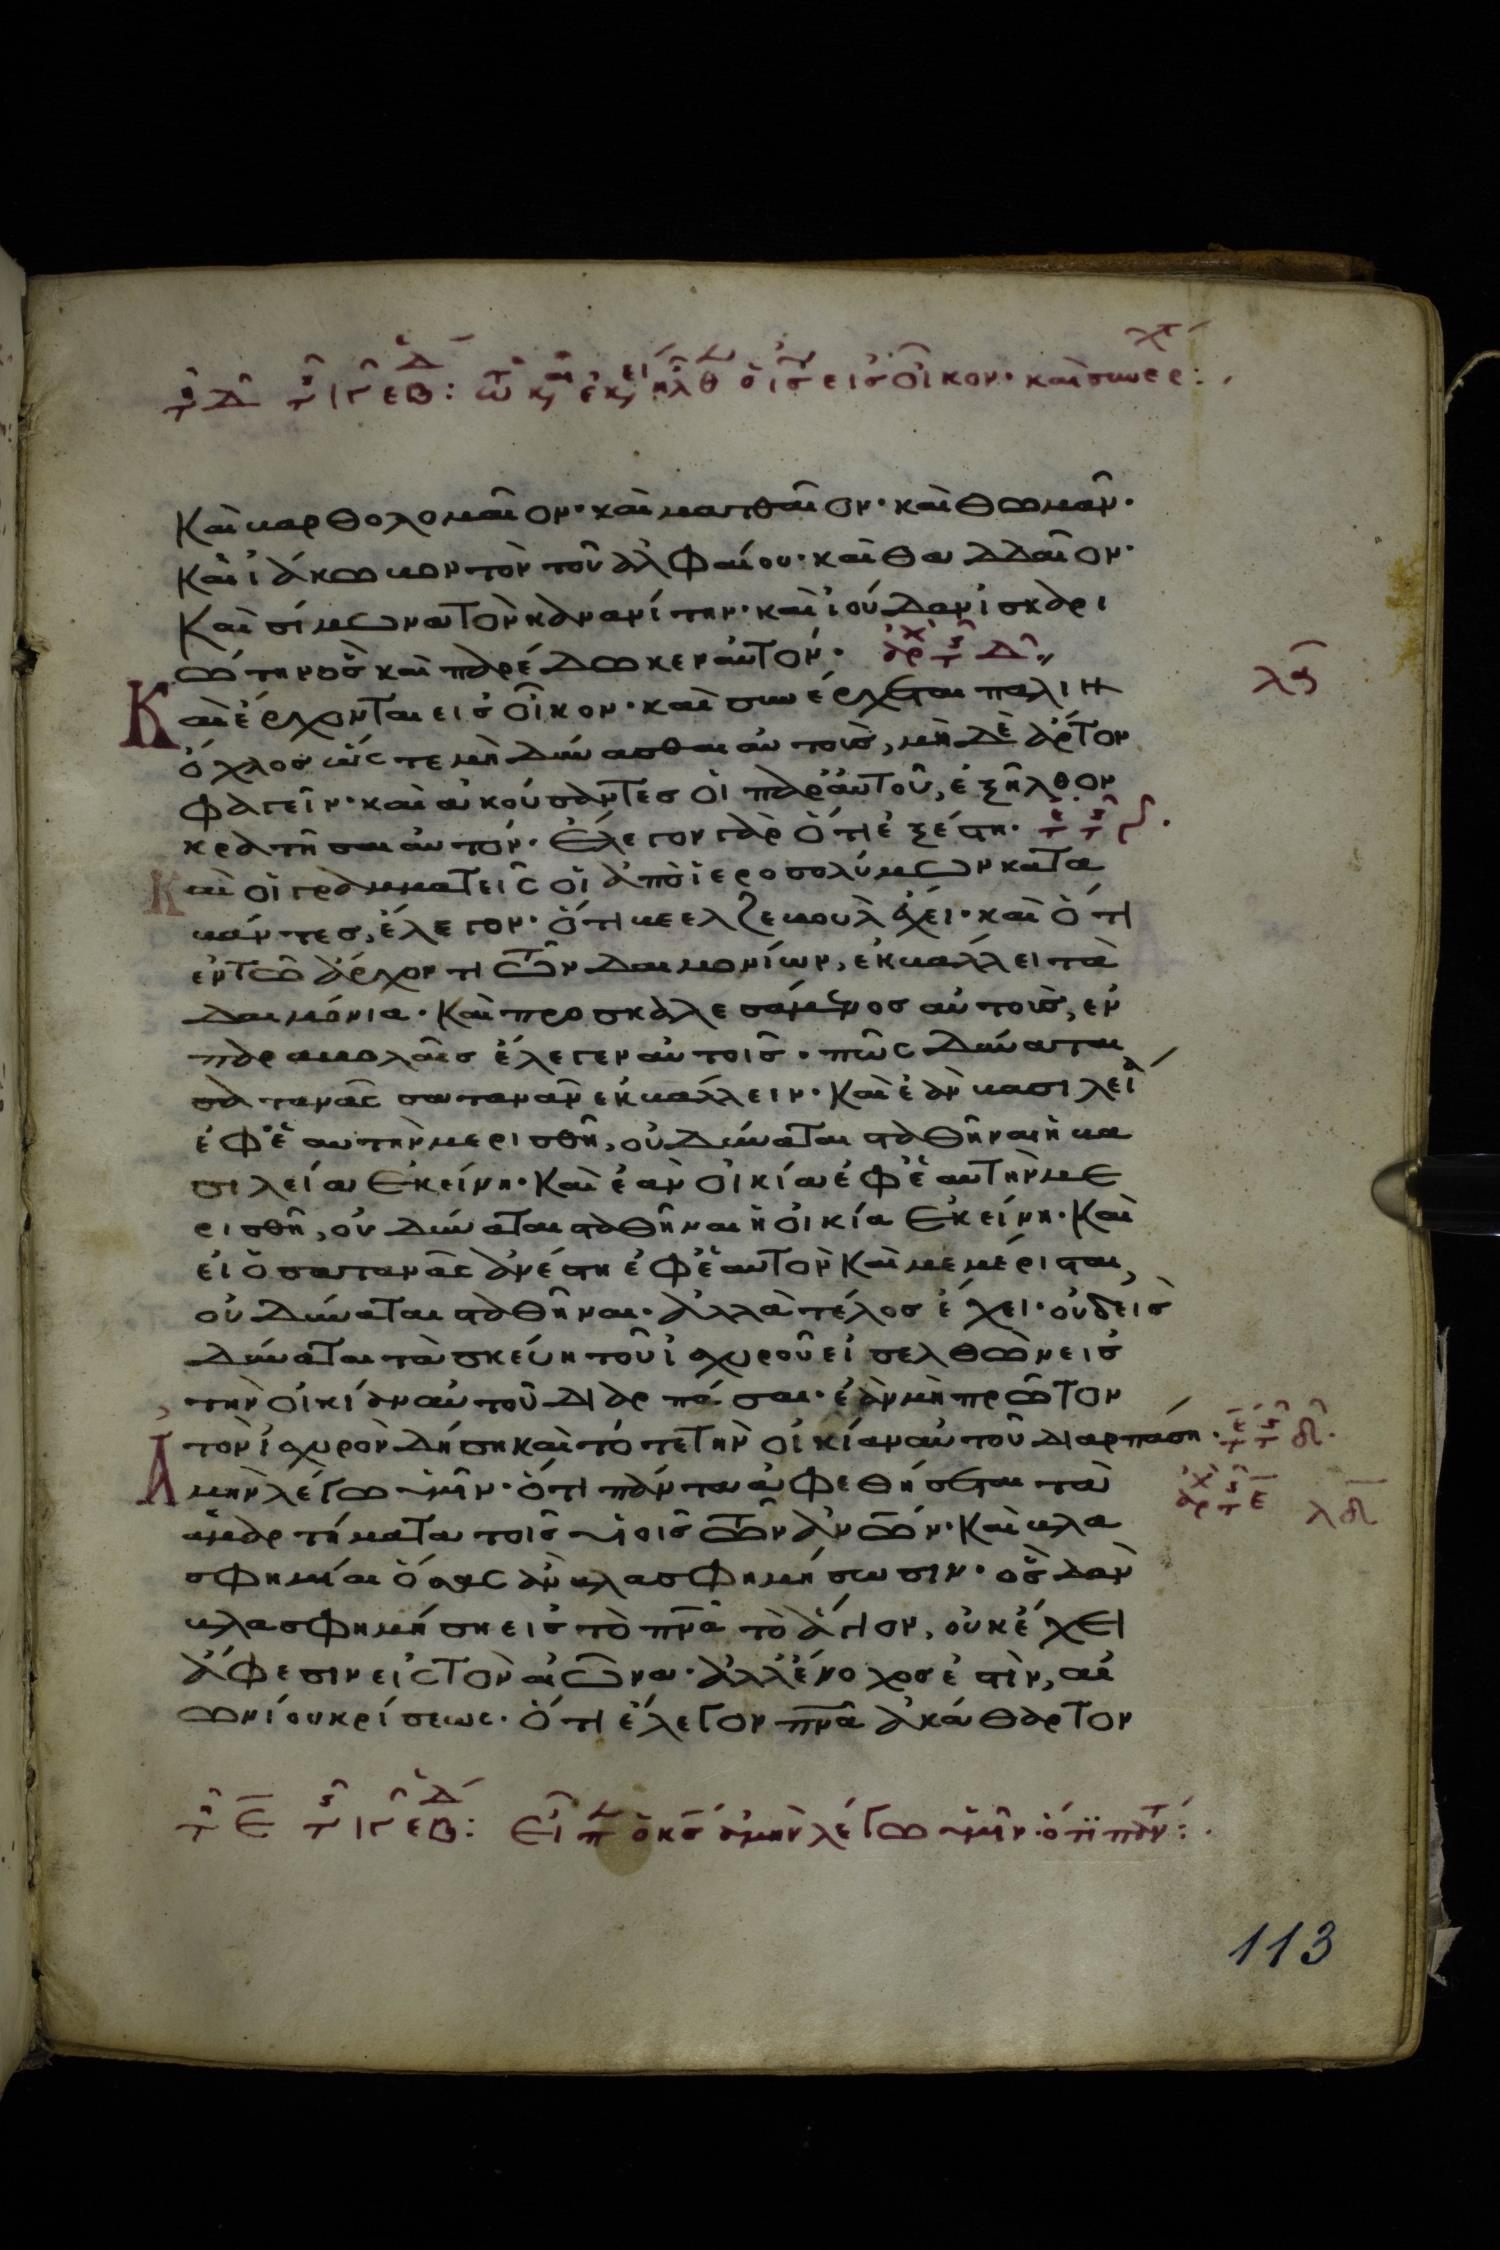 καὶ βαρθολομαῖον· καὶ ματθαῖον· καὶ θωμᾶν·
καὶ ἰάκωβον τὸν τοῦ ἀλφαίου· καὶ θαδδαῖον·
καὶ σίμωνα τὸν κανανίτην· καὶ ἰούδαν ἰσκαρι
ώτην ὃς καὶ παρέδωκεν αὐτόν·
Καὶ ἔρχονται εἰς οἶκον· καὶ συνέρχεται πάλιν
ὄχλος ὥστε μὴ δύνασθαι αὐτοὺς, μὴ δὲ ἄρτον
φαγεῖν· καὶ ἀκούσαντες οἱ παρ' αὐτοῦ, ἐξῆλθον
κρατῆσαι αὐτόν· ἔλεγον γὰρ ὅτι ἐξέστη·
Καὶ οἱ γραμματεῖς οἱ ἀπὸ ἱεροσολύμων κατα
βάντες, ἔλεγον· ὅτι βεελζεβοὺλ ἔχει· καὶ ὅτι
ἐν τῶ ἄρχοντι τῶν δαιμονίων, ἐκβάλλει τὰ
δαιμόνια· Καὶ προσκαλεσάμενος αὐτοὺς, ἐν
παραβολαῖς ἔλεγεν αὐτοῖς· πῶς δύναται
σατανᾶς σατανᾶν ἐκβάλλειν· Καὶ ἐὰν βασιλεία
ἐφ' ἑαυτὴν μερισθῆ, οὐ δύναται σταθῆναι ἡ βα
σιλεία ἐκείνη· Καὶ ἐὰν οἰκία ἐφ' ἑαυτὴν με
ρισθῆ, οὐ δύναται σταθῆναι ἡ οἰκία ἐκείνη· Καὶ
εἰ ὁ σατανᾶς ἀνέστη ἐφ' ἑαυτὸν καὶ μεμέρισται,
οὐ δύναται σταθῆναι· ἀλλὰ τέλος ἔχει· οὐδεὶς
δύναται τὰ σκεύη τοῦ ἰσχυροῦ εἰσελθὼν εἰς
τὴν οἰκίαν αὐτοῦ διαρπάσαι· ἐὰν μὴ πρῶτον
τὸν ἰσχυρὸν δήση καὶ τότε τὴν οἰκίαν αὐτοῦ διαρπάση·
Ἀμὴν λέγω ὑμῖν· ὅτι πάντα ἀφεθήσεται τὰ
ἁμαρτήματα τοῖς υἱοῖς τῶν ἀνων· Καὶ βλα
σφημίαι ὅσας ἂν βλασφημήσωσιν· ὃς δ' ἂν
βλασφημήση εἰς τὸ πνα τὸ ἅγιον, οὐκ ἔχει
ἄφεσιν εἰς τὸν αἰῶνα· ἀλλ' ἔνοχος ἐστὶν, αἰ
ωνίου κρίσεως· ὅτι ἔλεγον πνα ἀκάθαρτον
εἶπ ὁ κς ἀμὴν λέγω ὑμῖν· ὅτι πάντ:
113